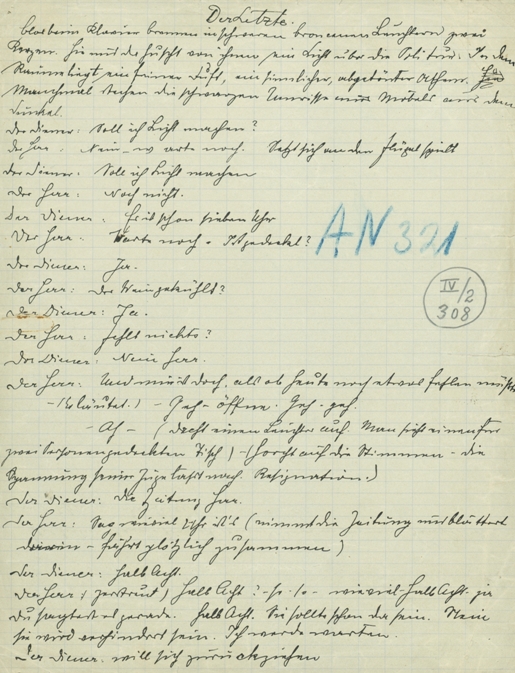 Der Letzte.
bloß beim Klavier brennen in schweren bronzenen Leuchtern zwei
Kerzen. hie und da huscht von ihnen ein Licht über die Politur. In dem
Raume liegt ein feiner Duft, ein sinnlicher, abgetönter Athem.
Manchmal stechen die schwarzen Umrisse eines Möbels aus dem
Dunkel.
Der Diener: Soll ich Licht machen?
Der Herr: Nein – warte noch. Setzt sich an den Flügel spielt
Der Diener: Soll ich Licht machen
Der Herr: Noch nicht.
Der Diener: Es ist schon sieben Uhr
Der Herr: Warte noch – Ist gedeckt?
AN 321
Der Diener: Ja.
Der Herr: Der Wein gekühlt?
IV/2
308
Der Diener: Ja.
Der Herr: Fehlt nichts?
Der Diener: Nein Herr.
Der Herr: Und mir ist doch, als ob heute noch etwas fehlen müßte
– (Es läutet.) – Geh – öffne. Geh – geh.
– Ah – (dreht einen Leuchter auf. Man sieht einen für
zwei Personen gedeckten Tisch) – (horcht auf die Stimmen – die
Spannung seiner Züge lässt nach. Resignation.)
Der Diener: Die Zeitung Herr.
Der Herr: Sag wieviel Uhr ist's (nimmt die Zeitung und blättert
darin – fährt plötzlich zusammen)
Der Diener: halb Acht.
Der Herr: (zerstreut) halb Acht? – so – so – wieviel – halb Acht. ja
du sagtest es gerade. halb Acht. Sie sollte schon da sein. Nein
sie wird verhindert sein. Ich werde warten.
Der Diener. will sich zurückziehen